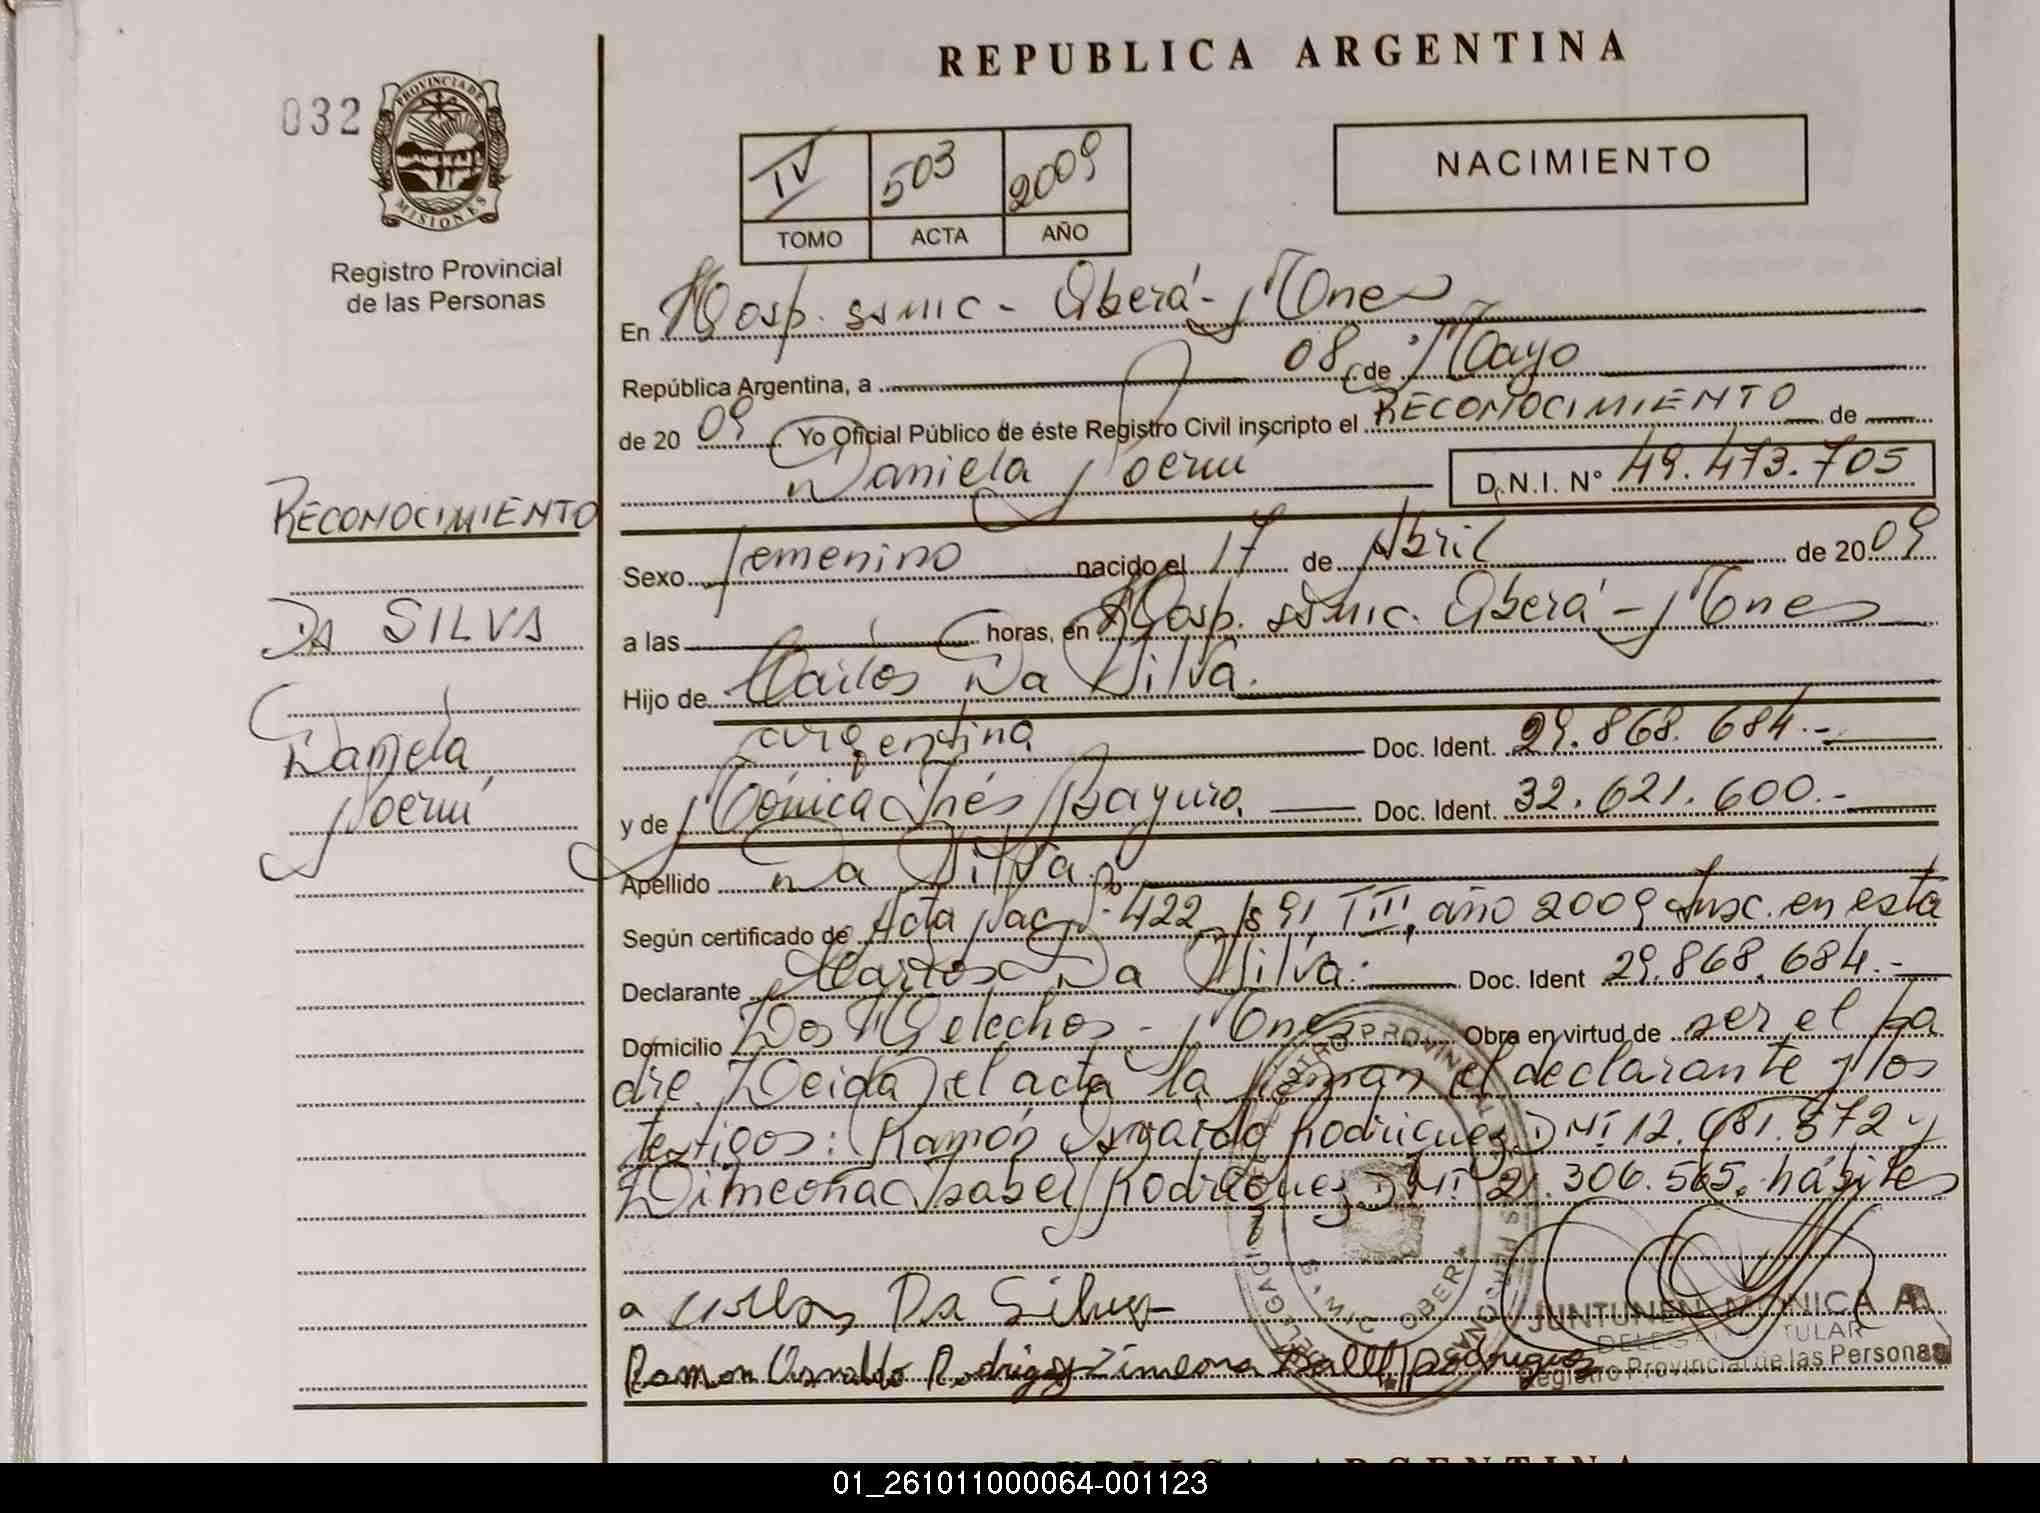 REPUBLICA ARGENTINA
032
PROVINCIA DE
MISIONES
Registro Provincial
de las Personas
IV 503 2009
TOMO ACTA AÑO
NACIMIENTO
En Hosp. SSMIC - Oberá - Mnes
República Argentina, a 08 de Mayo
de 2009 Yo Oficial Público de éste Registro Civil inscripto el RECONOCIMIENTO de
Daniela Noemí D.N.I. N° 49.473.705
RECONOCIMIENTO
DA SILVA
Daniela
Noemí
Sexo femenino nacido el 17 de Abril de 2009
a las horas, en Hosp. SSMIC. Oberá - Mnes
Hijo de Carlos Da Silva.
argentina Doc. Ident. 29.868.684.-
y de Mónica Inés Doc. Ident. 32.621.600.-
Apellido Da Silva.
Según certificado de Acta Nac. Nº 422 fs 91, TIII, año 2009 Insc. en esta
Declarante Carlos Da Silva. Doc. Ident 29.868.684.-
Domicilio Dos Helechos - Mnes Obra en virtud de ser el pa
dre. Leida el acta la firman el declarante y los
testigos: Ramón Osvaldo Rodriguez DNI 12.681.572 y
Zimeona Isabel Rodriguez DNI 21.306.565. hábiles
a Carlos Da Silva
Ramon Osvaldo Rodriguez Zimeona Isabel Rodriguez
JUNTUNEN MONICA A.
DELEGADA TITULAR
Registro Provincial de las Personas
REPUBLICA ARGENTINA
01_261011000064-001123